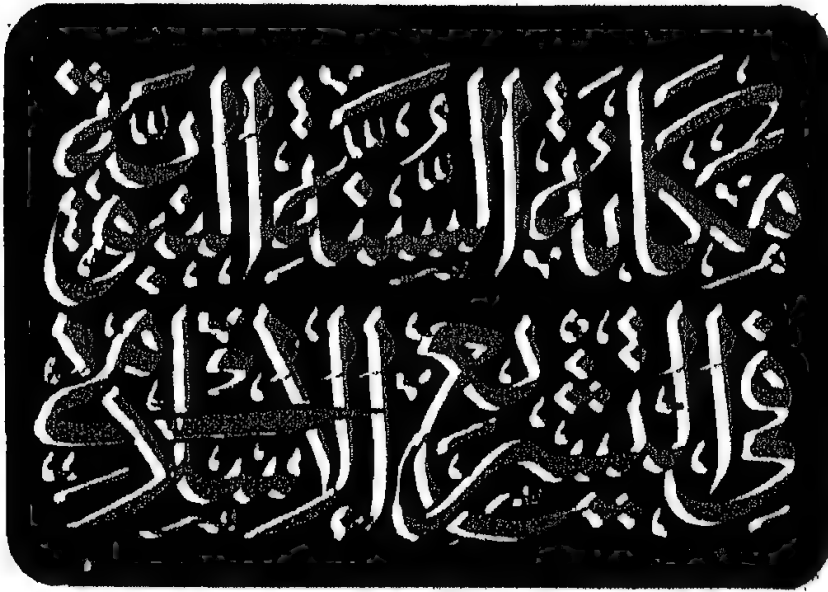 مكانة السنة النبوية
في التشريع الإسلامي